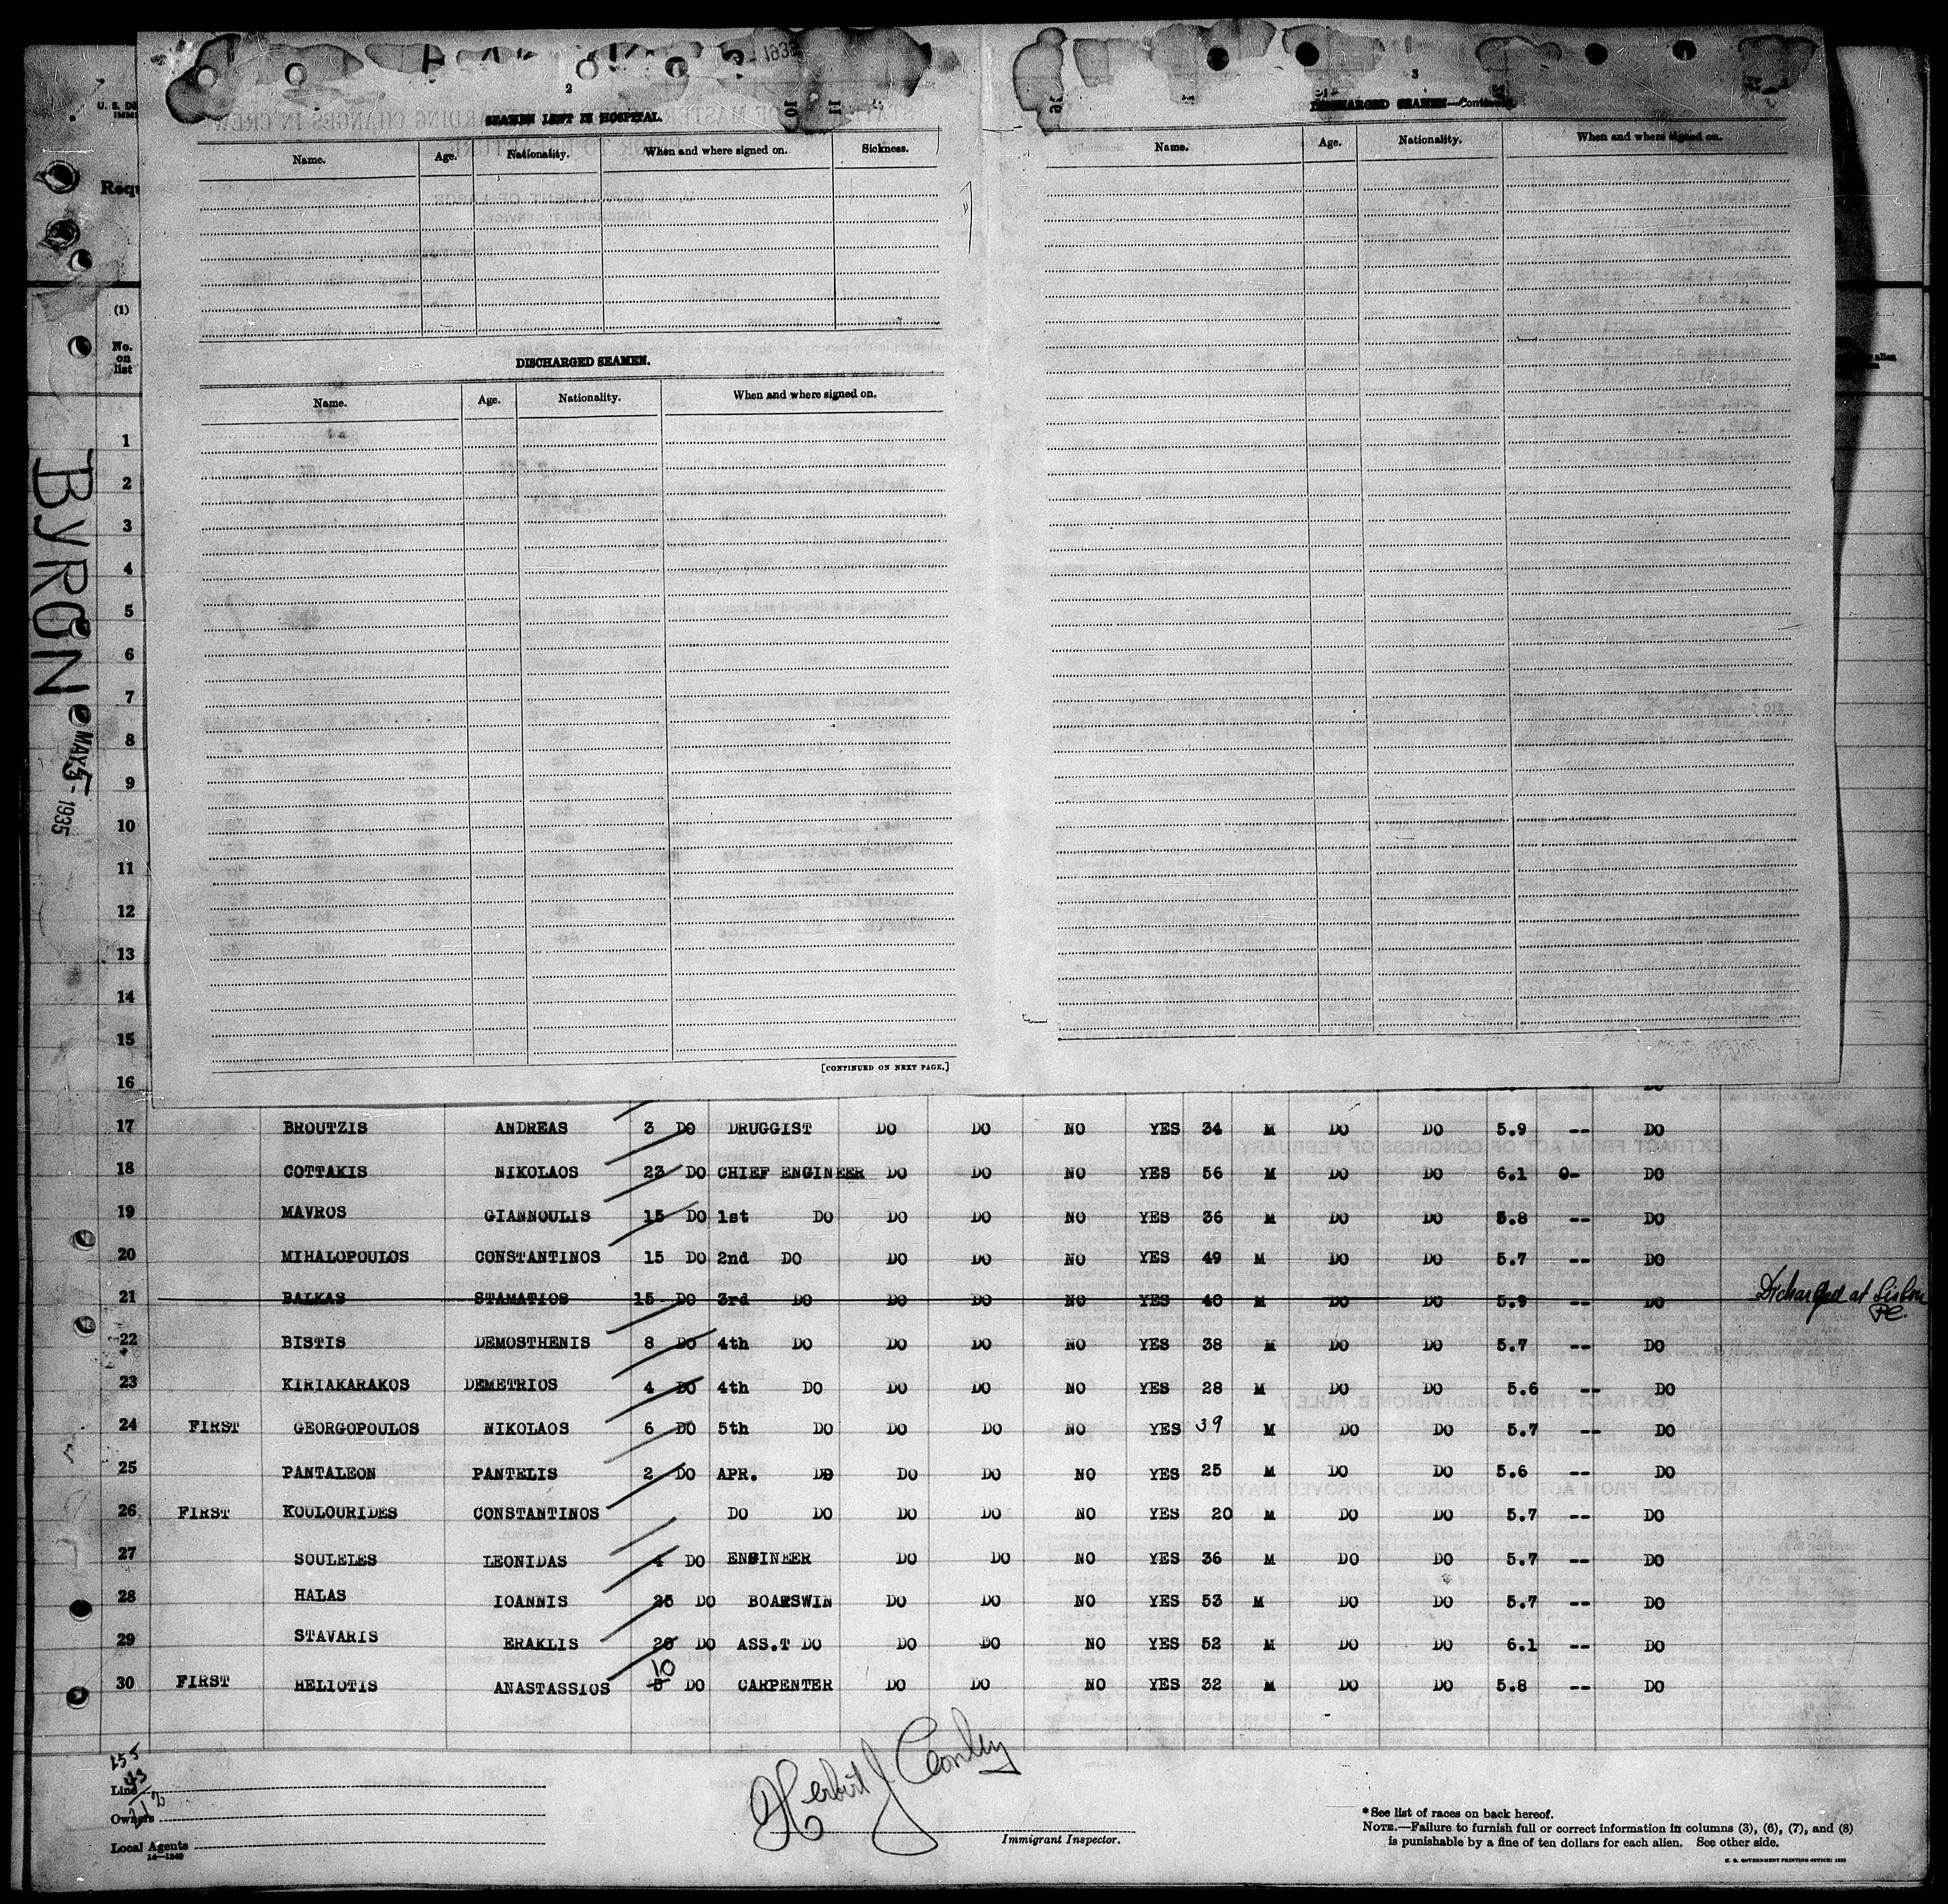 U. S. DE
IMMI
Requ
(1)
No.
on
list
BYRON
MAY 5 - 1935
2
SEAMEN LEFT IN HOSPITAL.
Name. Age. Nationality. When and where signed on. Sickness.
DISCHARGED SEAMEN.
Name. Age. Nationality. When and where signed on.
[CONTINUED ON NEXT PAGE.]
3
DISCHARGED SEAMEN—Continued
Name. Age. Nationality. When and where signed on.
alien
1
2
3
4
5
6
7
8
9
10
11
12
13
14
15
16 DO
17 BROUTZIS ANDREAS 3 DO DRUGGIST DO DO NO YES 34 M DO DO 5.9 -- DO
18 COTTAKIS NIKOLAOS 23 DO CHIEF ENGINEER DO DO NO YES 56 M DO DO 6.1 0- DO
19 MAVROS GIANNOULIS 15 DO 1st DO DO DO NO YES 36 M DO DO 5.8 -- DO
20 MIHALOPOULOS CONSTANTINOS 15 DO 2nd DO DO DO NO YES 49 M DO DO 5.7 -- DO
21 BALKAS STAMATIOS 15 DO 3rd DO DO DO NO YES 40 M DO DO 5.9 -- DO Discharged at Lisbon
22 BISTIS DEMOSTHENIS 8 DO 4th DO DO DO NO YES 38 M DO DO 5.7 -- DO
23 KIRIAKARAKOS DEMETRIOS 4 DO 4th DO DO DO NO YES 28 M DO DO 5.6 -- DO
24 FIRST GEORGOPOULOS NIKOLAOS 6 DO 5th DO DO DO NO YES 39 M DO DO 5.7 -- DO
25 PANTALEON PANTELIS 2 DO APR. DO DO DO NO YES 25 M DO DO 5.6 -- DO
26 FIRST KOULOURIDES CONSTANTINOS DO DO DO DO NO YES 20 M DO DO 5.7 -- DO
27 SOULELES LEONIDAS 4 DO ENGINEER DO DO NO YES 36 M DO DO 5.7 -- DO
28 HALAS IOANNIS 25 DO BOARSWIN DO DO NO YES 53 M DO DO 5.7 -- DO
29 STAVARIS ERAKLIS 20 DO ASS.T DO DO DO NO YES 52 M DO DO 6.1 -- DO
10
30 FIRST HELIOTIS ANASTASSIOS 5 DO CARPENTER DO DO NO YES 32 M DO DO 5.8 -- DO
155
Line
Owners
Local Agents
14—1240
Herbert J Conley
Immigrant Inspector.
* See list of races on back hereof.
NOTE.—Failure to furnish full or correct information in columns (3), (6), (7), and (8)
is punishable by a fine of ten dollars for each alien. See other side.
U. S. GOVERNMENT PRINTING OFFICE: